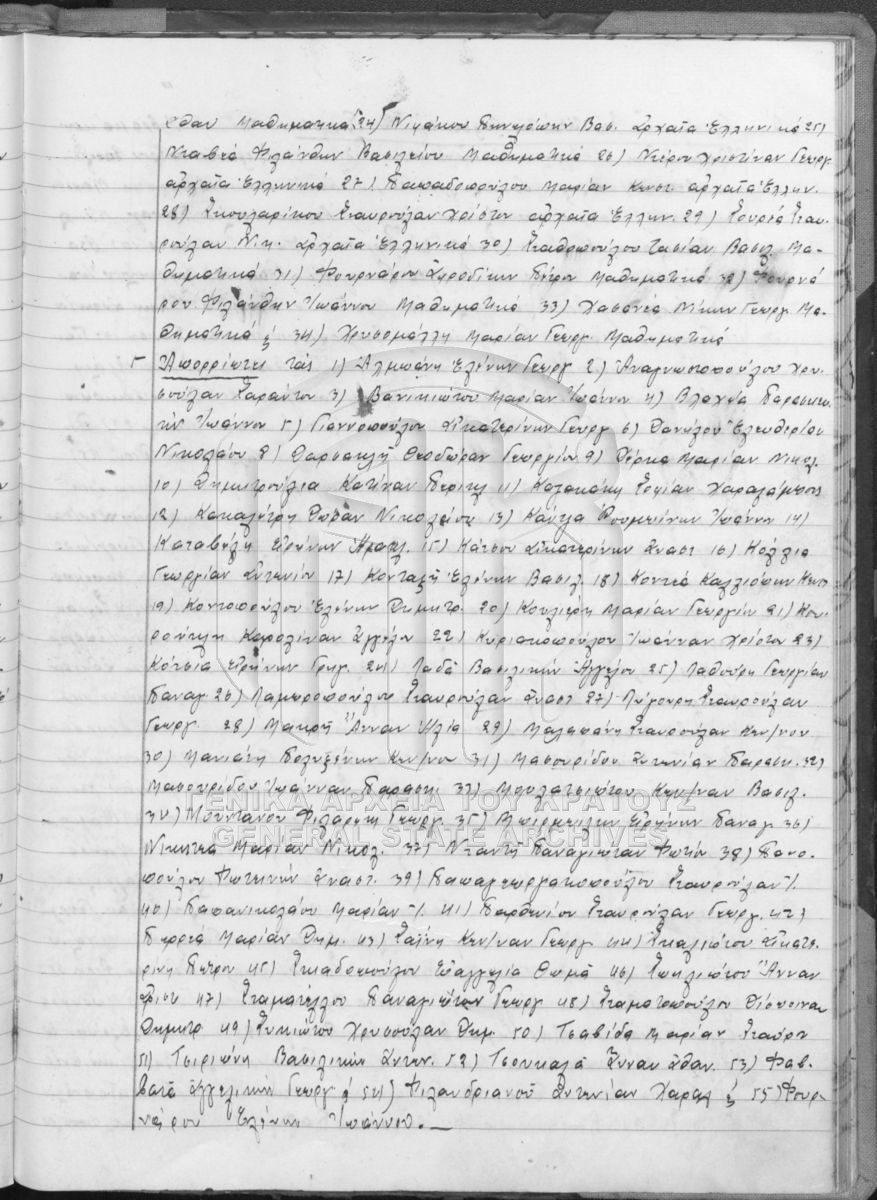 Μαθηματικά 24) Βασ. Ἀρχαῖα Ἑλληνικά 25)
Νταβέα Φιλάνθην Βασιλείου Μαθηματικά 26) Ντέρου Χριστίναν Γεωργ.
ἀρχαῖα Ἑλληνικά 27) Παπαδοπούλου Μαρίαν Κωνστ. ἀρχαῖα Ἑλλην.
28) Σκουλαρίκου Σταυρούλαν Χρίστου ἀρχαῖα Ἑλλην. 29) Σουρέα Σταυ-
ρούλαν Νικ. Ἀρχαῖα Ἑλληνικά 30) Σταθοπούλου Τασίαν Βασιλ. Μα-
θηματικά 31) Φουρνάρου Ἀφροδίτην Πέτρου Μαθηματικά 32) Φουρνά
ρου Φιλάνθην Ἰωάννου Μαθηματικά 33) Χασανέα Νίκην Γεωργ. Μα-
θηματικά & 34) Χρυσομάλλη Μαρίαν Γεωργ. Μαθηματικά
Γ Ἀπορρίπτει τάς 1) Ἑλένην Γεωργ. 2) Ἀναγνωστοπούλου Χρυ-
σούλαν Σαράντου 3) Βανικιώτου Μαρίαν Ἰωάννου 4) Βλαχέα Παρασκευ-
ήν Ἰωάννου 5) Γιαννοπούλου Αἰκατερίνην Γεωργ. 6) Δανήλου Ἐλευθερίαν
Νικολάου 8) Θεοδώραν Γεωργίου 9) Μαρίαν Νικολ.
10) Δημητρούλια Κατίναν Περικλ. 11) Καζακάκη Σοφίαν Χαραλάμπους
12) Νικολάου 13) Ἰωάννου 14)
Εἰρήνην 15) Κάτσου Αἰκατερίνην Ἀναστ. 16) Κόλλια
Γεωργίαν Ἀντωνίου 17) Κονταξῆ Ἑλένην Βασιλ. 18) Κοντέα Καλλιόπην Κωνστ.
19) Κοντοπούλου Ἑλένην Δημητρ. 20) Κουλιέρη Μαρίαν Γεωργίου 21) Κου-
ρούκλη Καρολίναν Ἀγγέλου 22) Κυριακοπούλου Ἰωάνναν Χρίστου 23)
Κότσια Εἰρήνην Γρηγ. 24) Λαδᾶ Βασιλικήν Ἀγγέλου 25) Λαθούρη Γεωργίαν
Παναγ. 26) Λαμπροπούλου Σταυρούλαν Ἀναστ. 27) Λύγουρη Σταυρούλαν
Γεωργ. 28) Μακρῆ Ἄνναν Ἠλία 29) Μαλαπάνη Σταυρούλαν Κων/νου
30) Μανιάτη Πολυξένην Κων/νου 31) Μασουρίδου Ἀντωνίαν Παρασκ. 32)
Μασουρίδου Ἰωάνναν Παρασκ. 33) Μουλατσιώτου Κων/ναν Βασιλ.
34) Μουντάνου Φιλαρέτη Γεωργ. 35) Εἰρήνην Παναγ. 36)
Νικητέα Μαρίαν Νικολ. 37) Νταντῆ Παναγιώταν Φωτίου 38) Πανο-
πούλου Φωτεινήν Ἀναστ. 39) Παπαγεωργακοπούλου Σταυρούλαν Ἰ.
40) Παπανικολάου Μαρίαν Ἰ. 41) Παρθενίου Σταυρούλαν Γεωργ. 42)
Πιερρέα Μαρίαν Δημ. 43) Σαΐνη Κων/ναν Γεωργ. 44) Σκαλιώτου Αἰκατε-
ρίνη Πέτρου 45) Σκιαδοπούλου Εὐαγγελία Θωμᾶ 46) Σπηλιώτου Ἄνναν
Χρίστ. 47) Σταματέλλου Παναγιώταν Γεωργ. 48) Σταματοπούλου Διόνοιναν
Δημητρ. 49) Συκιώτου Χρυσούλαν Δημ. 50) Τσαβίδα Μαρίαν Σταύρου
51) Τσιριώνη Βασιλικήν Ἀντων. 52) Τσουκαλᾶ Ἄνναν Ἀθαν. 53) Φαβ-
βατᾶ Ἀγγελικήν Γεωργ. & 54) Φιλανδριανοῦ Ἀντωνίαν Χαραλ. & 55) Φουρ-
νάρου Ἑλένην Ἰωάννου. —
ΓΕΝΙΚΑ ΑΡΧΕΙΑ ΤΟΥ ΚΡΑΤΟΥΣ
GENERAL STATE ARCHIVES